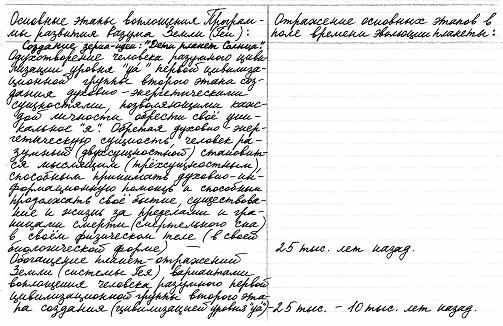 Основные этапы воплощения Програм-
мы развития разума Земли (Геи):
Создание зерна-идеи: "Дети планет Солнца".
Одухотворение человека разумного циви-
лизации уровня "уа" первой цивилиза-
ционной группы второго этапа соз-
дания духовно-энергетическими
сущностями, позволяющими каж-
дой личности обрести своё уни-
кальное "я". Обретая духовно-энер-
гетическую сущность, человек ра-
зумный (двухсущностной) становит-
ся мыслящим (трёхсущностным),
способным принимать духовно-ин-
формационную помощь и способным
продолжать своё бытие, существова-
ние и жизнь за пределами и гра-
ницами смерти (смертельного сна)
в своём физическом теле (в своей
биологической форме) —
Обогащение планет-отражений
Земли (системы Гея) вариантами
воплощения человека разумного первой
цивилизационной группы второго эта-
па создания (цивилизацией уровня "уа") —
Отражение основных этапов в
поле времени эволюции планеты:
25 тыс. лет назад.
25 тыс. – 10 тыс. лет назад.